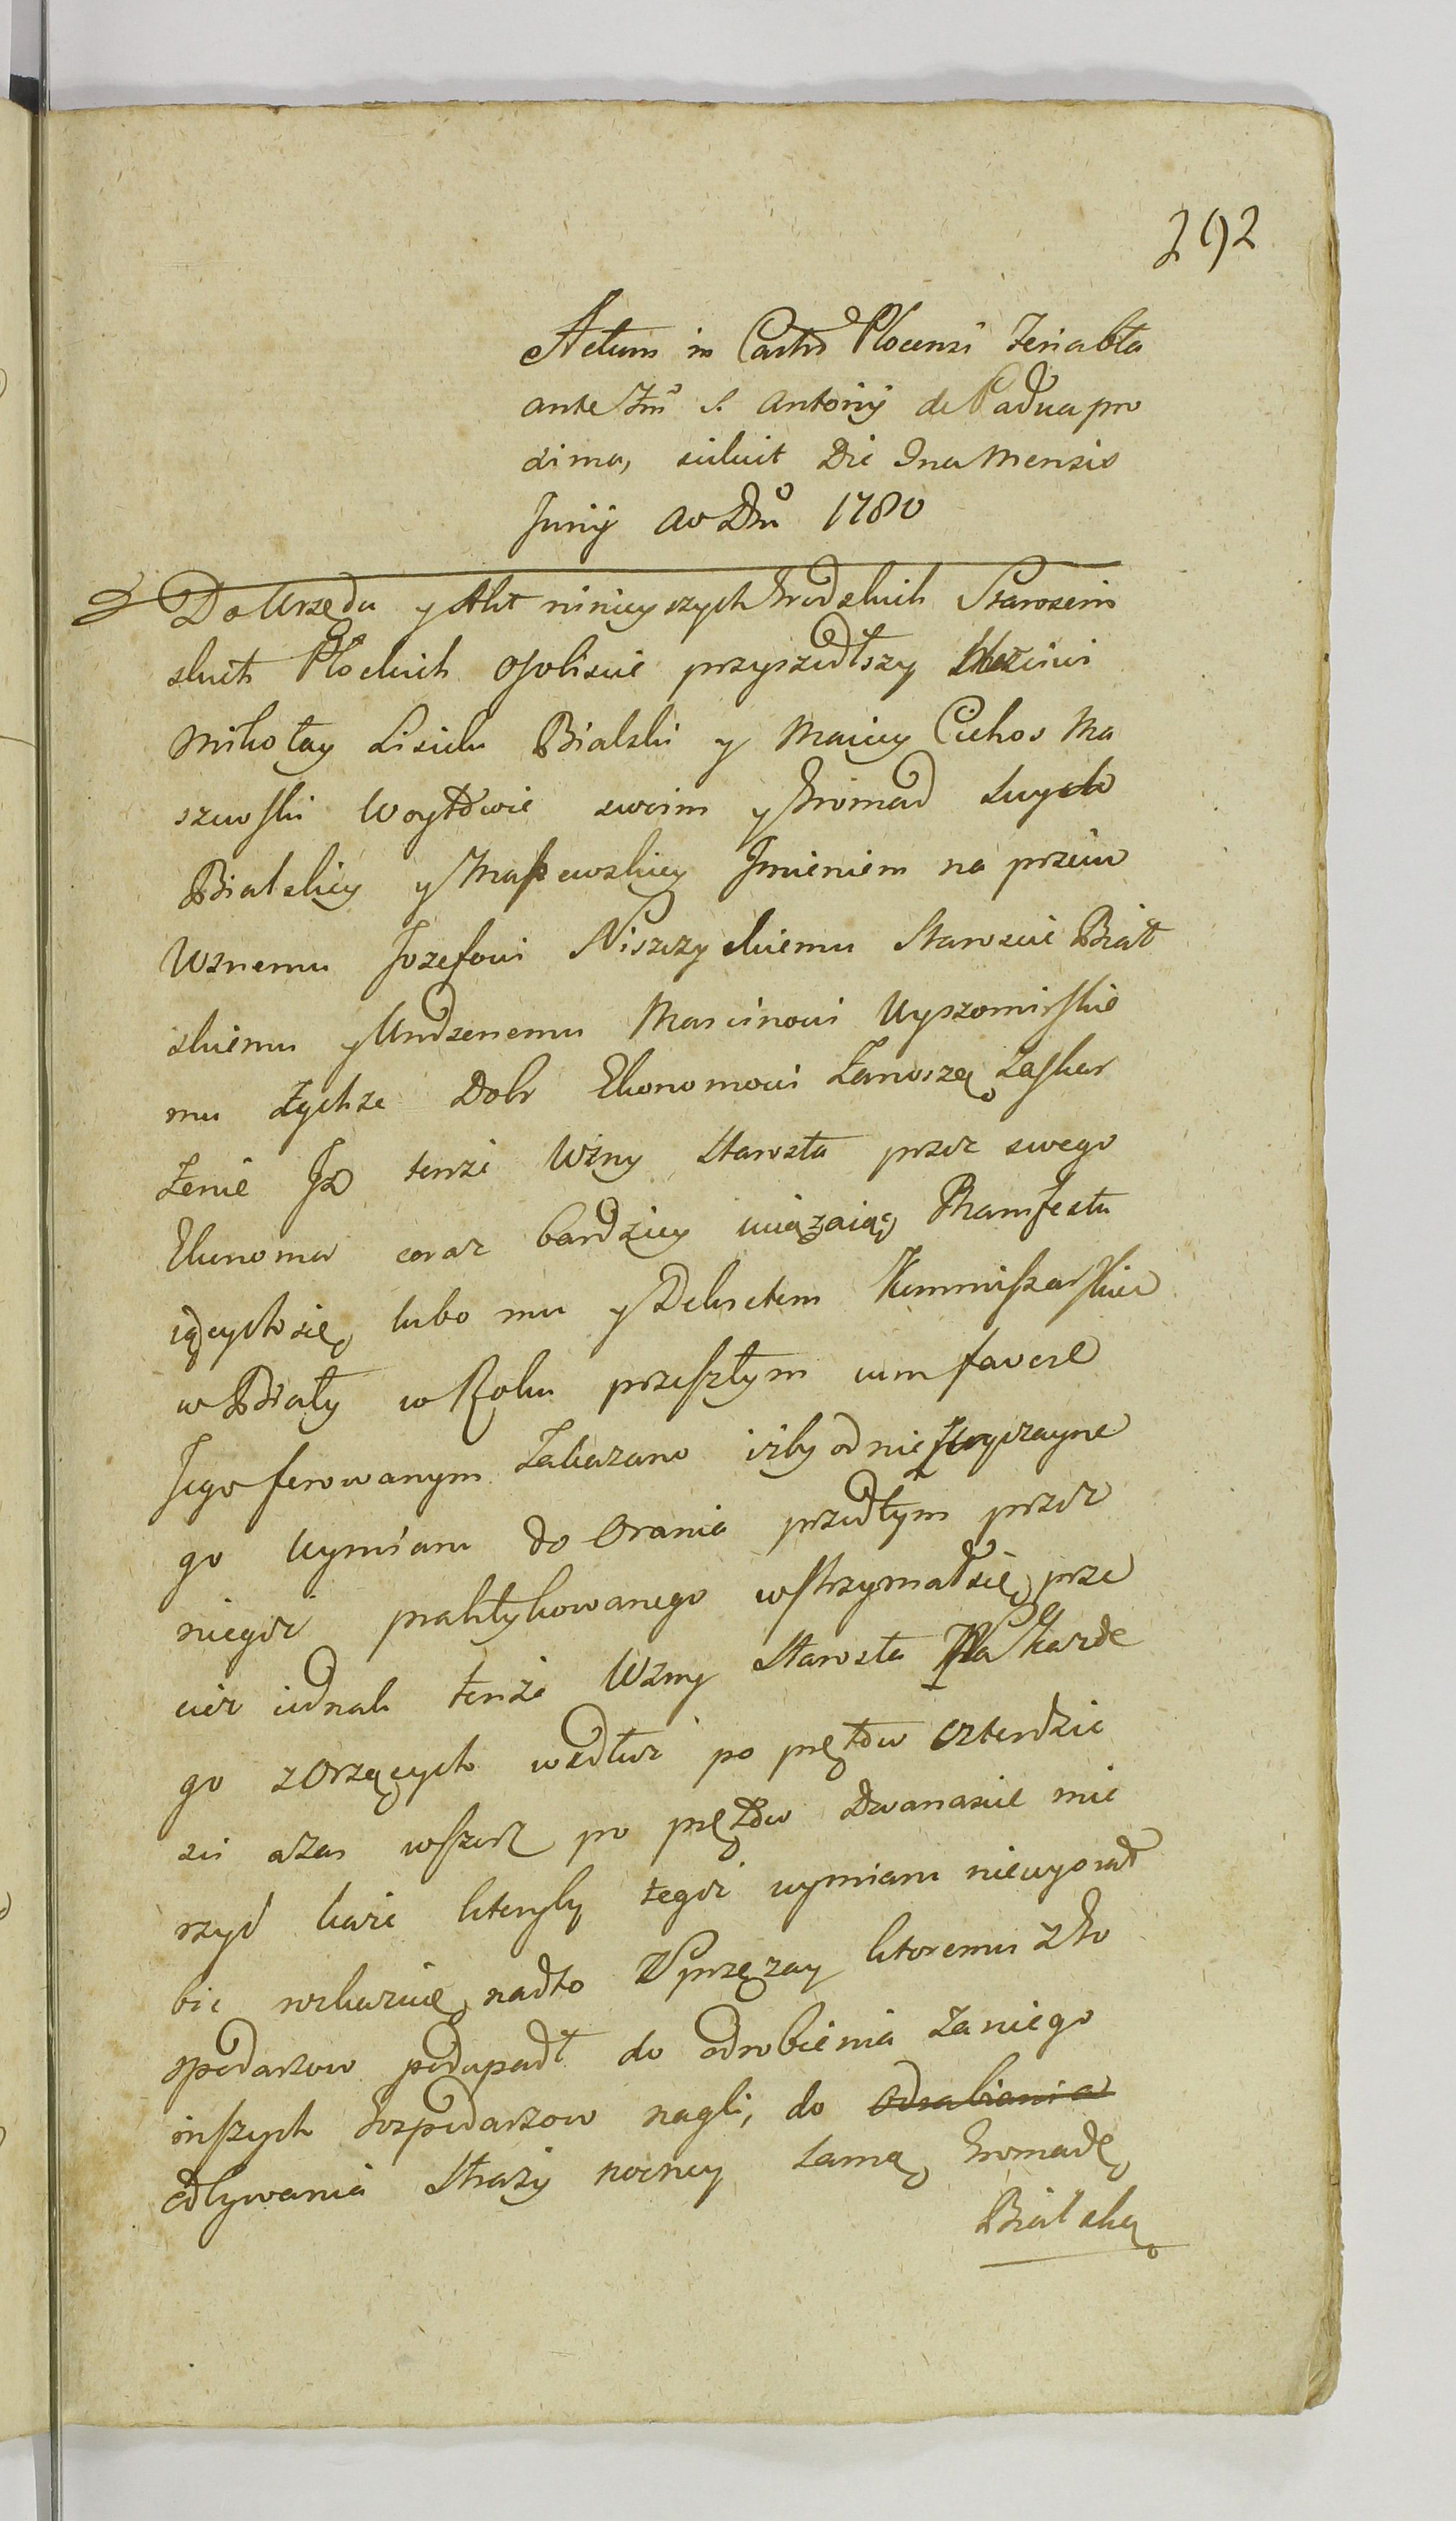 292
Actum in Castro Plocensi Feria 6ta
ante Fm S. Antonij de Padua pro
xima, scilicet Die 9na Mensis
Junij Ao Dni 1780
Do Urzędu y Akt ninieyszych Grodzkich Starosciń
skich Płockich osobiscie przyszedłszy Uczciwi
Mikołay Bialski y Maciey Cichos Ma
szewski Woytowie swoim y Gromad swych
Bialskiey y Maszewskiey Jmieniem na przeciw
Wżnemu Jozefowi Niszczyckiemu Staroscie Biał
skiemu y Urodzenemu Marcinowi Wyszomirskie
mu tychże Dobr Ekonomowi Zanoszą Zaskar
żenie Jż tenże Wżny Starosta przez swego
Ekonoma coraz bardziey uciążaiąc Manifestu
iących się, lubo mu y Dekretem Kommissarskim
w Biały w Roku przeszłym cum favore
Jego ferowanym Zakazano iżby od niezwyczayne
go wymiaru do Orania przedtym przez
niegoż praktykowanego wstrzymał się, prze
cież iednak tenże Wżny Starosta Na Każde
go z Orzących wedłuż po prętow czterdzie
sci a zas wszerz po prętow dwanascie mie
rzyć każe ktoryby tegoż wymiaru niewyorał
bić roskazuie, nadto Sprzężay ktoremu z Go
spodarzow podupadł do odrobienia Za niego
inszych Gospodarzow nagli, do Odrabiania
odbywania Straży nocney samą Gromadę
Bialską